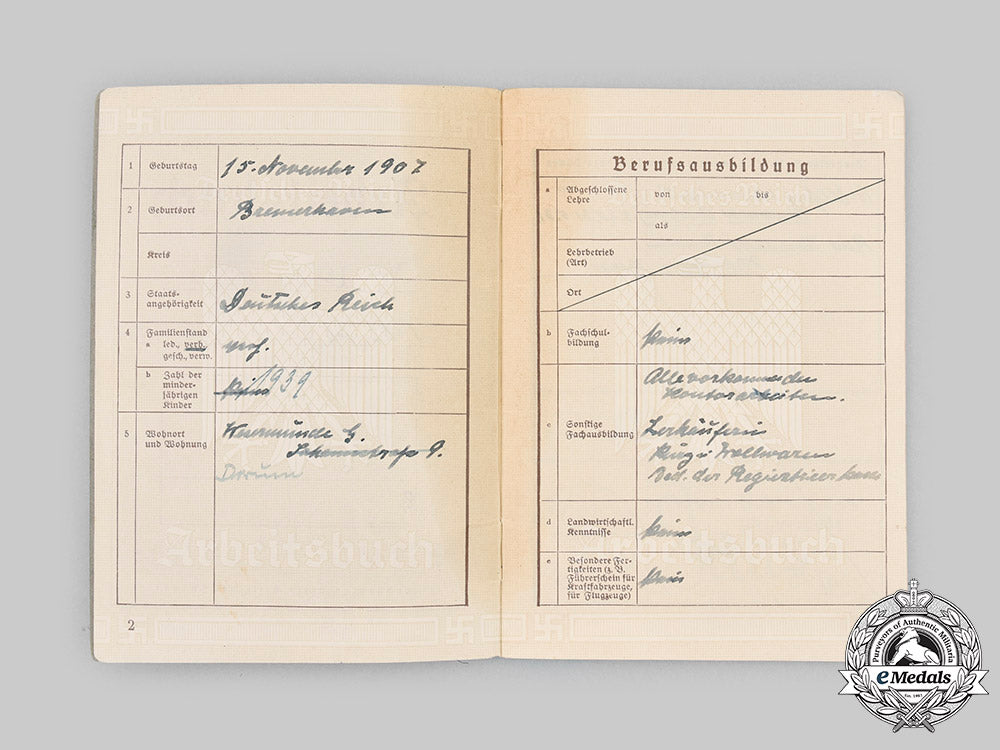 1 Geburtstag 15. November 1907
2 Geburtsort Bremerhaven
Kreis
3 Staats-
angehörigkeit Deutsches Reich
4 Familienstand
a led., verh.,
gesch., verw.
b Zahl der
minder-
jährigen
Kinder 1939
5 Wohnort
und Wohnung
Wesermünde G.
Johannistraße 9.
Dorum
Arbeitsbuch
2
Berufsausbildung
a Abgeschlossene
Lehre
von bis
als
Lehrbetrieb
(Art)
Ort
b Fachschul-
bildung keine
c Sonstige
Fachausbildung
Alle vorkommenden
Kontorarbeiten.
Verkäuferin
Wollwaren
Bed. der Registrierkasse
d Landwirtschaftl.
Kenntnisse keine
e Besondere Fer-
tigkeiten (z. B.
Führerschein für
Kraftfahrzeuge,
für Flugzeuge) keine
Arbeitsbuch
Purveyors of Authentic Militaria
eMedals